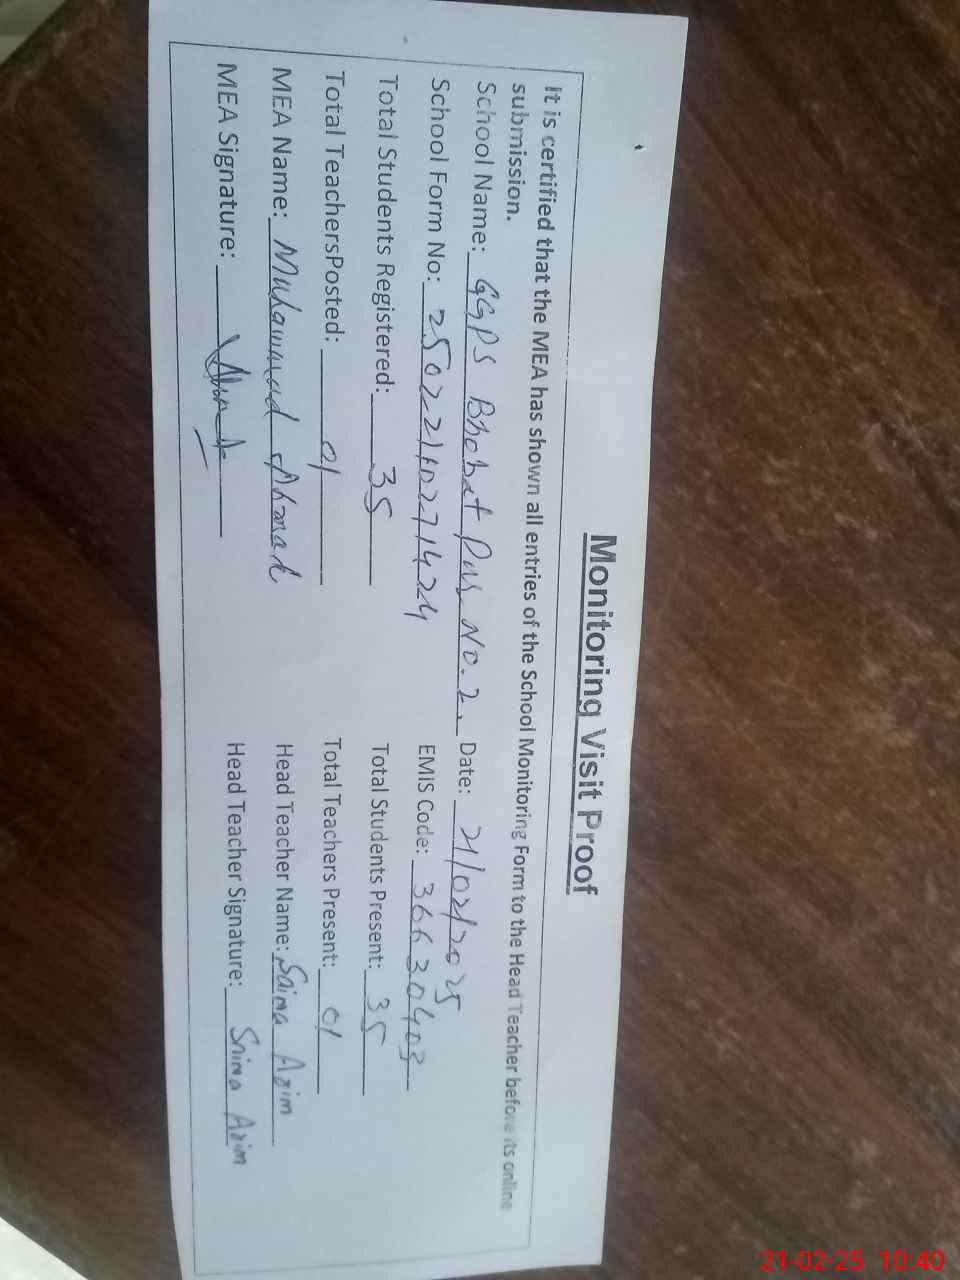 Monitoring Visit Proof
It is certified that the MEA has shown all entries of the School Monitoring Form to the Head Teacher before its online
submission.
School Name: GGPS Bhobat Pus No. 2. Date: 21/02/2025
School Form No: EMIS Code: 36630403
Total Students Registered: 35 Total Students Present: 35
Total TeachersPosted: 01 Total Teachers Present: 01
MEA Name: Muhammad Ahmad Head Teacher Name: Saima Azim
MEA Signature: Head Teacher Signature: Saima Azim
21-02-25 10:40